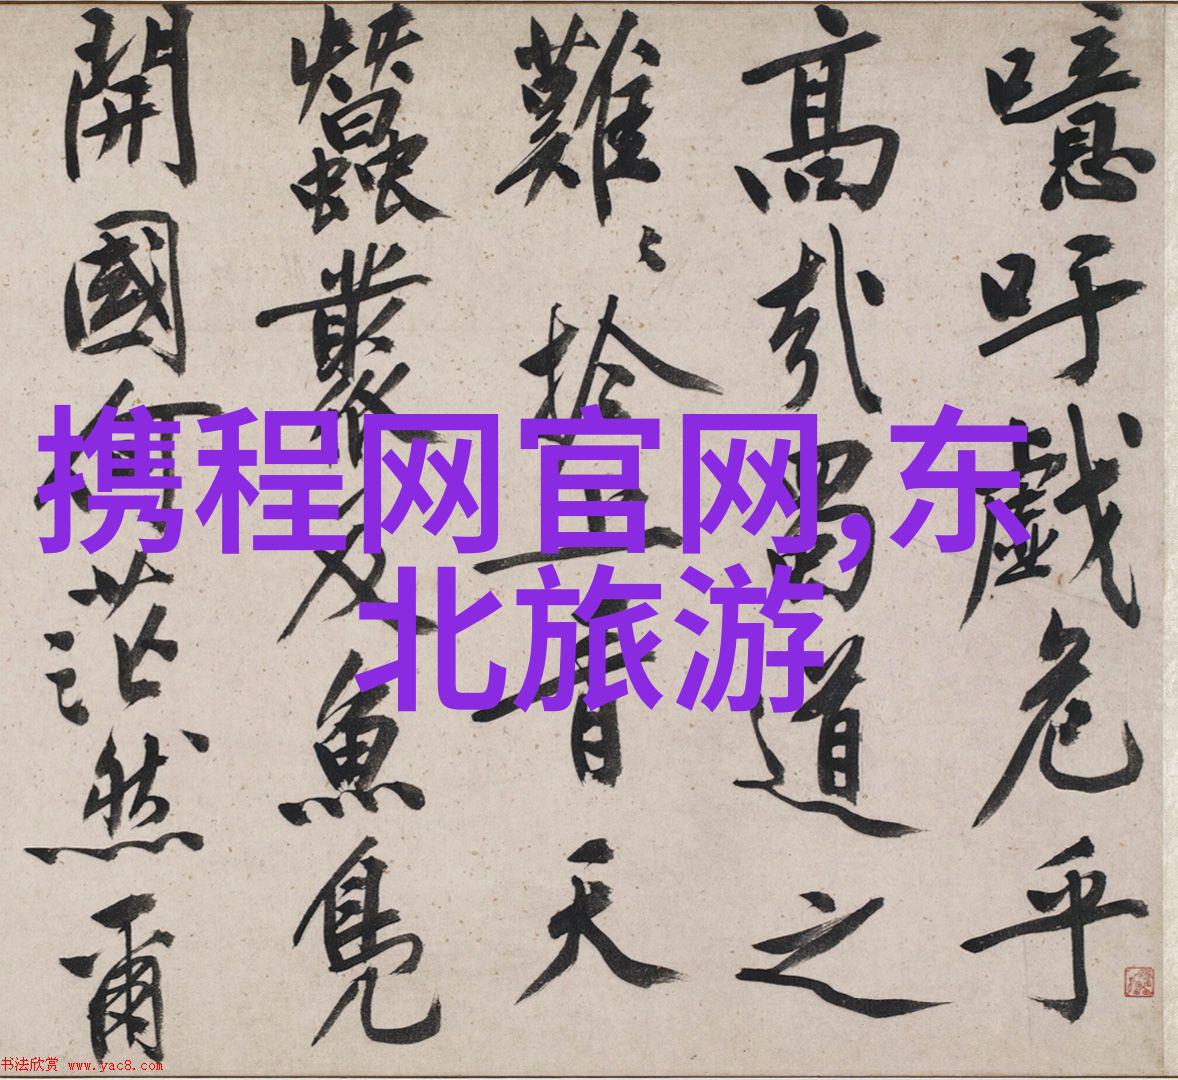 噫吁戲危乎
高哉蜀道之
難〻於上青天
蠶叢及魚鳧
開國何茫然爾
携程网官网,东
北旅游
书法欣赏 www.yac8.com